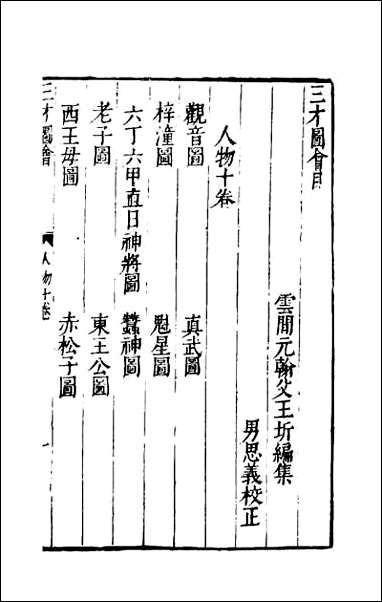 三才圖會目
雲間元翰父王圻編集
男思義校正
人物十卷
觀音圖 真武圖
梓潼圖 魁星圖
六丁六甲直日神將圖 蠶神圖
老子圖 東王公圖
西王母圖 赤松子圖
三才圖會 人物十卷 一